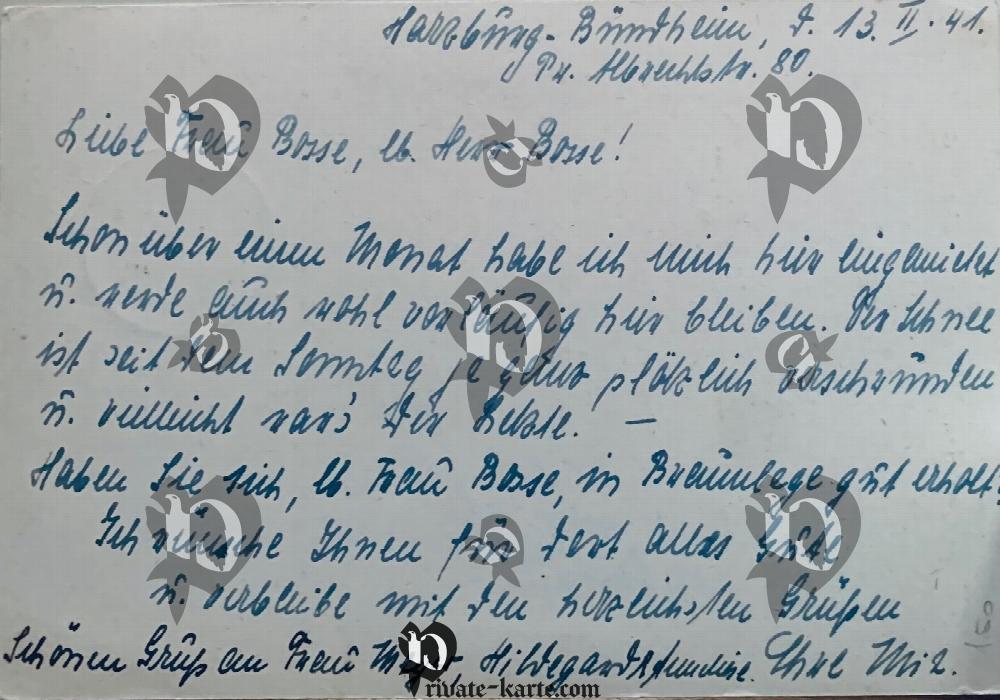 Harzburg-Bündheim, d. 13. II. 41.
Pr. Albrechtstr. 80.
Liebe Frau Bosse, lb. Herr Bosse!
Schon über einen Monat habe ich mich hier eingenistet
u. werde auch wohl vorläufig hier bleiben. Der Schnee
ist seit dem Sonntag ja ganz plötzlich verschwunden
u. vielleicht war's der letzte. —
Haben Sie sich, lb. Frau Bosse, in Braunlage gut erholt?
Ich wünsche Ihnen für dort alles Gute
u. verbleibe mit den herzlichsten Grüßen
Schönen Gruß an Frau Hildegard Ihre
private-karte.com